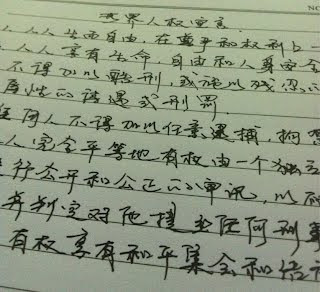 世界人权宣言
人人生而自由，在尊严和权利上一
人人享有生命，自由和人身安全
不得加以酷刑，或施以残忍
辱性的待遇或刑罚
任何人不得加以任意逮捕，拘
人完全平等地有权由一个独立
行公开和公正的审讯，以
并判定对他提出任何刑事
有权享有和平集会和结